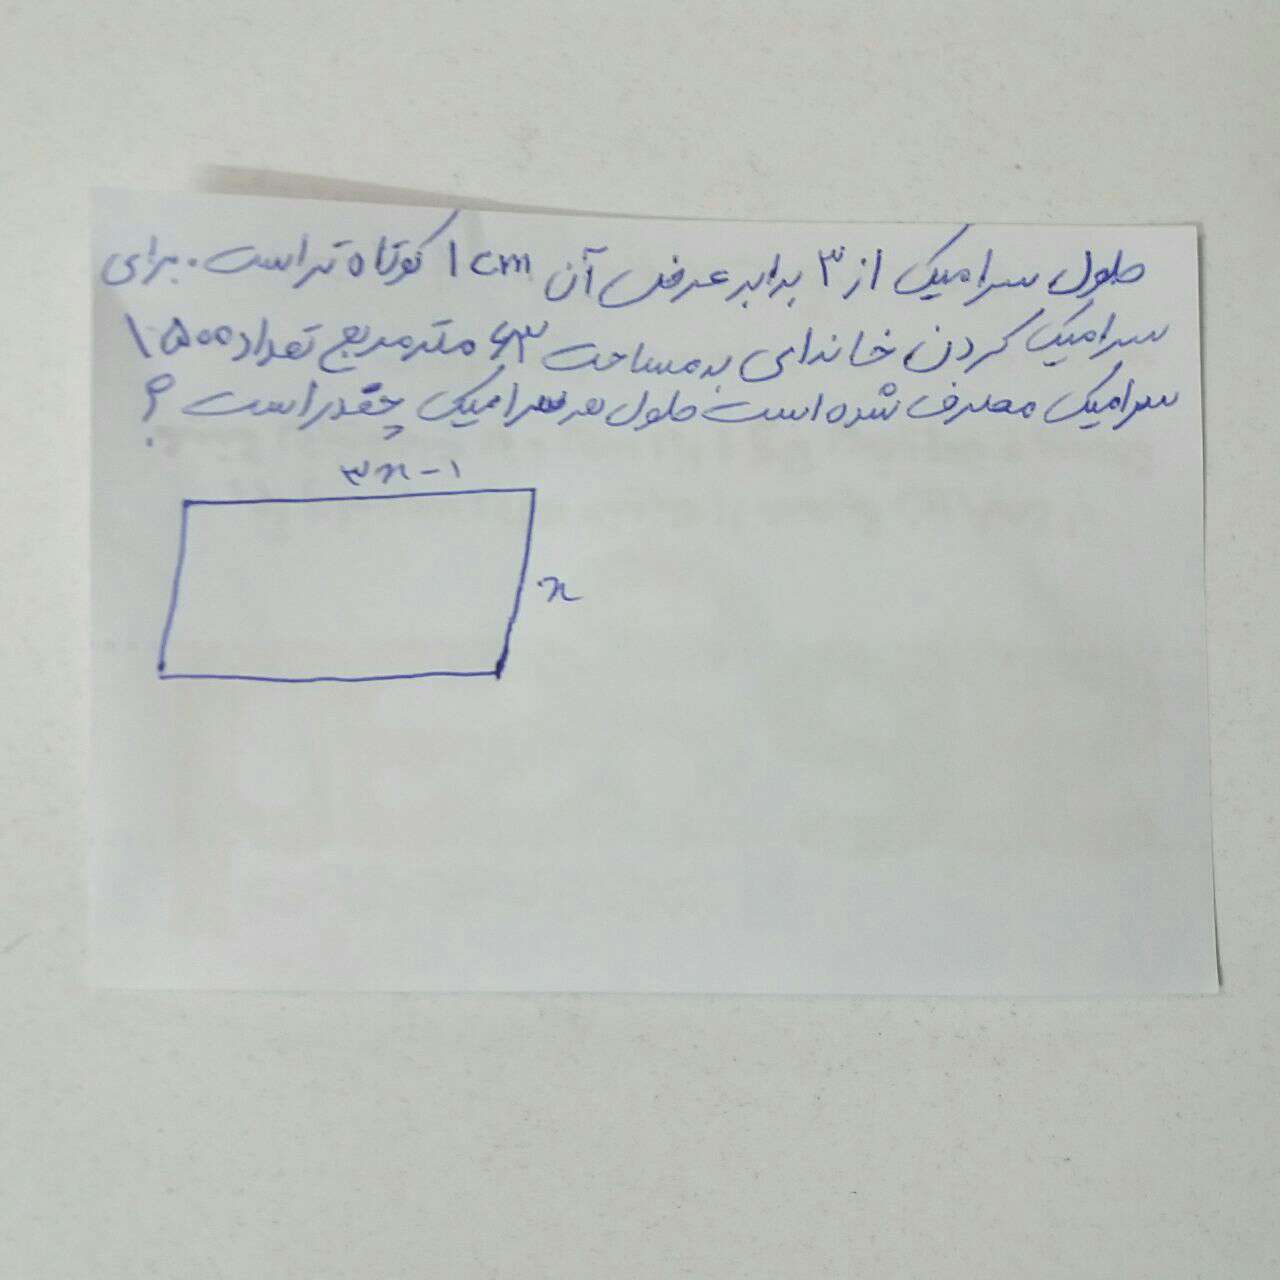 طول سرامیک از ۳ برابر عرض آن 1 cm کوتاه تر است. برای
سرامیک کردن خانه‌ای به مساحت ۶۳ متر مربع تعداد ۱۵۰۰
سرامیک مصرف شده است طول هر سرامیک چقدر است ؟
۳x - ۱
x